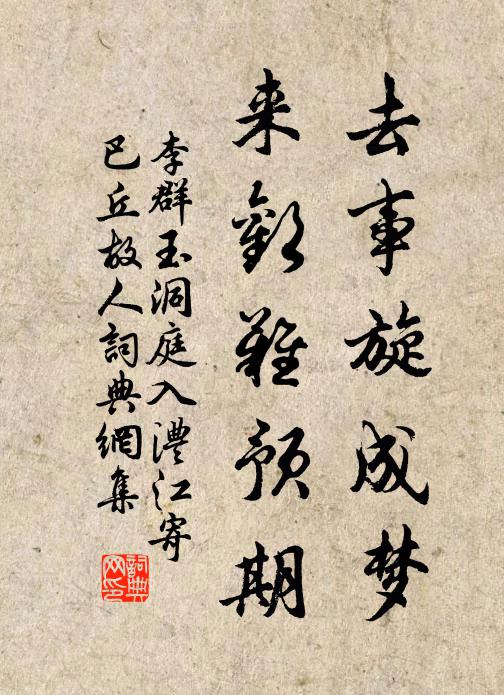 去事旋成梦
来歡難预期
李群玉洞庭入澧江寄
巴丘故人詞典網集
詞典
网印